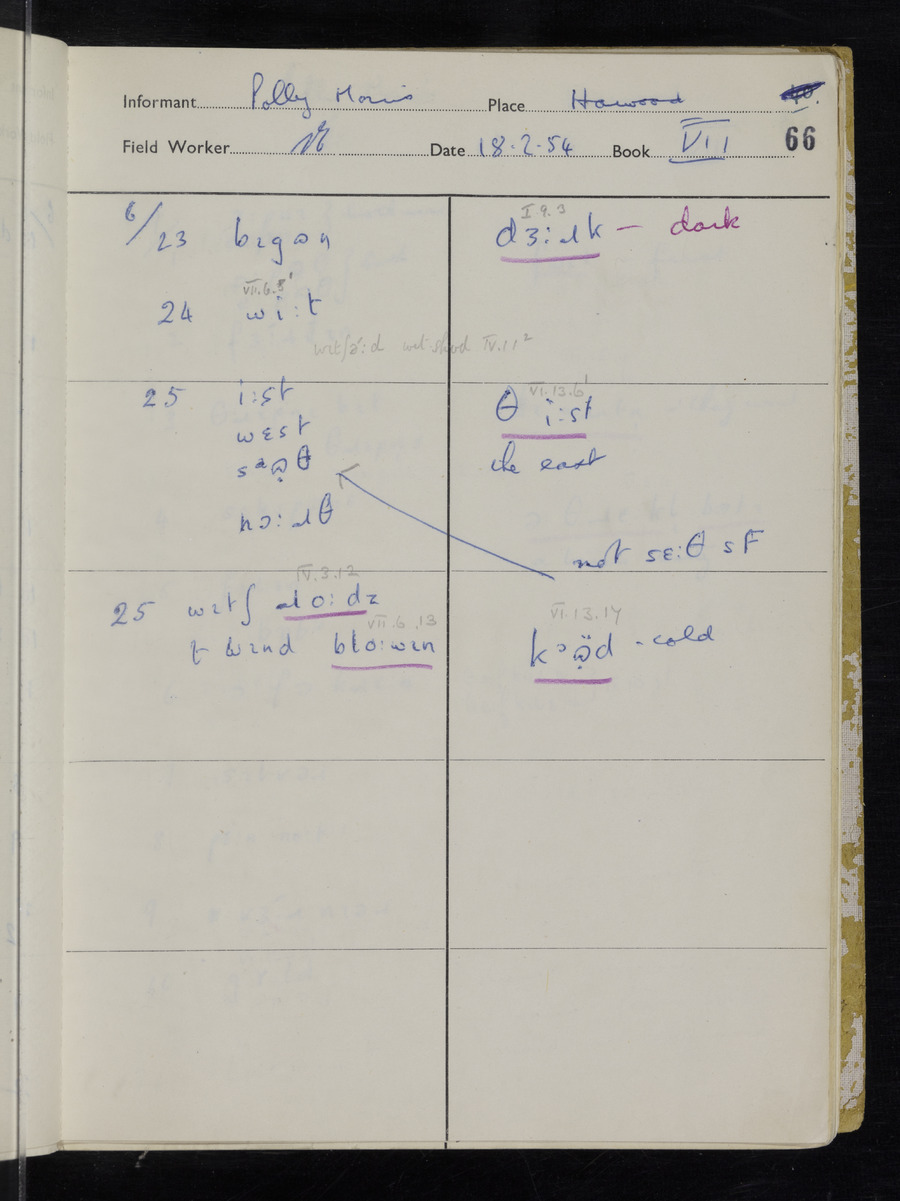 Informant Polly Morris Place Harwood
66
Field Worker Date 18.2.54 Book VII
6/23 bɪgɒn
I 9.3
dɜ:ɹk — dark
VII.6.5¹
24 wi:t
wet shod IV.11²
25 i:st
VI.13.6¹
θ i:st
wɛst
the east
nɔ:ɹθ
not sɛ:θ sF
IV.3.12
25 wɪtʃ ɹo:dz
VII.6.13
t wɪnd blo:wɪn
VI.13.17
- cold